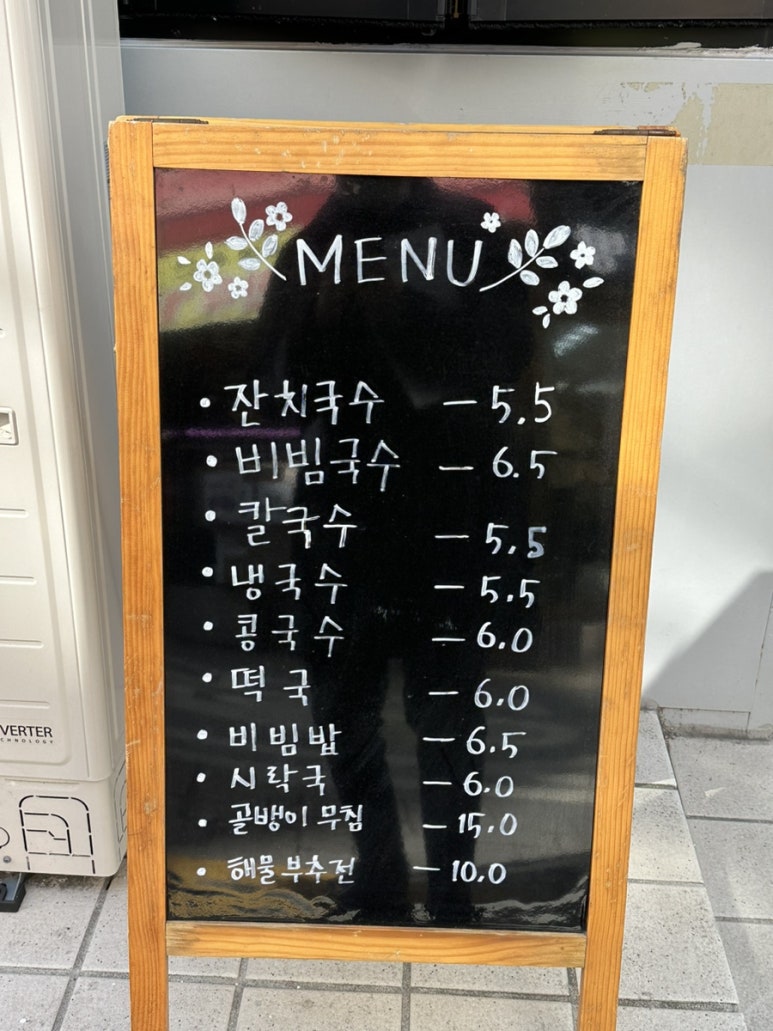 MENU
• 잔치국수 — 5.5
• 비빔국수 — 6.5
• 칼국수 — 5.5
• 냉국수 — 5.5
• 콩국수 — 6.0
• 떡국 — 6.0
• 비빔밥 — 6.5
• 시락국 — 6.0
• 골뱅이 무침 — 15.0
• 해물부추전 — 10.0
VERTER
CHNOLOGY